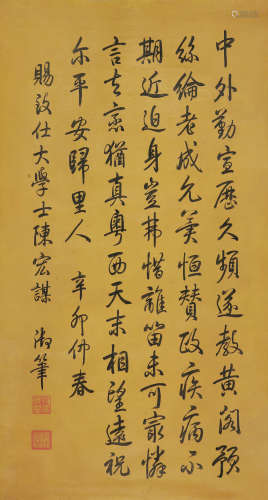 中外勤宣歷久頻遂教黃閣預
絲綸老成允羡恒贊政疾病不
期近迫身豈弗惜離留未可冣憐
言去意猶真粵西天末相望遠祝
尔平安歸里人 辛卯仲春
賜致仕大學士陳宏謀 御筆